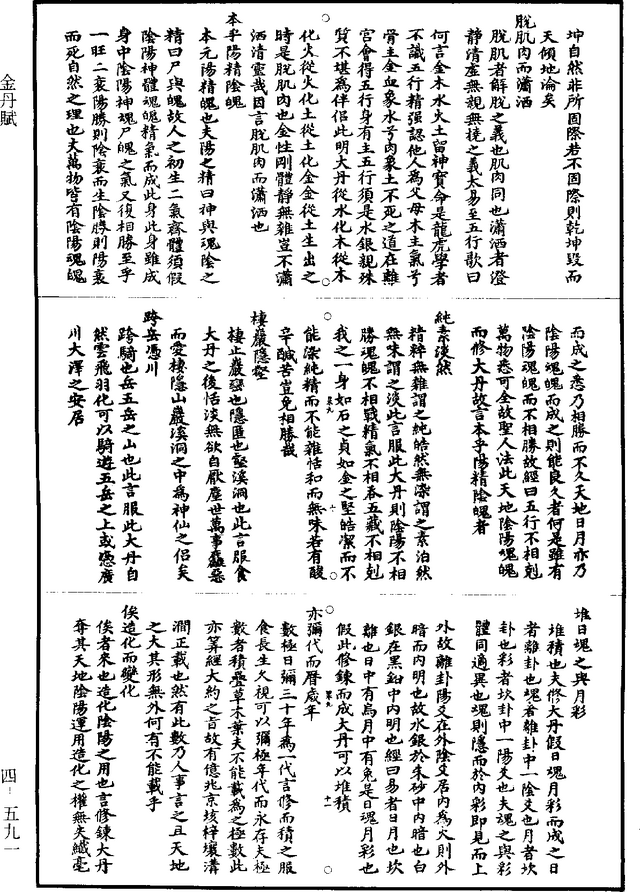 金丹賦
四-五九一
坤自然非所固際若不固際則乾坤毀而
天傾地淪矣
脫肌肉而瀟洒
脫肌者解脫之義也肌肉同也瀟洒者澄
靜清虛無親無撓之義太易至五行歌曰
何言金木水火土留神寶命是龍虎學者
不識五行精強認他人為父母木主氣兮
骨主金血象水兮肉象土不死之道在離
宮會得五行身有主五行須是水銀親殊
質不堪為伴侶此明大丹從水化木從木
化火從火化土從土化金金從土生出之
時是脫肌肉也金性剛體靜無雜豈不瀟
洒清靈哉因言脫肌肉而瀟洒也
本乎陽精陰魄
本元陽精魄也夫陽之精曰神與魂陰之
精曰尸與魄故人之初生二氣齊體須假
陰陽神體魂魄精氣而成此身此身雖成
身中陰陽神魂尸魄之氣又復相勝至乎
一旺二衰陽勝則陰衰而生陰勝則陽衰
而死自然之理也夫萬物皆有陰陽魂魄
而成之悉乃相勝而不久天地日月亦乃
陰陽魂魄而成之則能良久者何是雖有
陰陽魂魄而不相勝故經曰五行不相剋
萬物悉可全故聖人法此天地陰陽魂魄
而修大丹故言本乎陽精陰魄者
純素淡然
精粹無雜謂之純皓然無染謂之素泊然
無味謂之淡此言服此大丹則陰陽不相
勝魂魄不相戰精氣不相吞五藏不相剋
我之一身如石之貞如金之堅皓潔而不
能染純精而不能雜恬和而無味若有酸
辛鹹苦豈免相勝哉
棲巖隱壑
棲止巖壑也隱匿也壑溪洞也此言服食
大丹之後恬淡無欲自厭塵世萬事麤惡
而愛棲隱山巖溪洞之中為神仙之侶矣
跨岳憑川
跨騎也岳五岳之山也此言服此大丹自
然雲飛羽化可以騎遊五岳之上或憑廣
川大澤之安居
堆日魂之與月彩
堆積也夫修大丹假日魂月彩而成之日
者離卦也魂者離卦中一陰爻也月者坎
卦也彩者坎卦中一陽爻也夫魂之與彩
體同適異也魂則隱而於內彩即見而上
外故離卦陽爻在外陰爻居內為火則外
暗而內明也故水銀於朱砂中內暗也白
銀在黑鉛中內明也經曰易者日月也坎
離也日中有烏月中有兔是日魂月彩也
假此修鍊而成大丹可以堆積
亦彌代而曆歲年
數極曰彌三十年為一代言修而積之服
食長生久視可以彌極年代而永存夫極
數者積疊草木葉夫不能載為之極數此
亦算經大約之言故有億兆京垓梓壤溝
澗正載也然有此數乃人事言之且天地
之大其形無外何有不能載乎
俟造化而變化
俟者來也造化陰陽之用也言修鍊大丹
奪其天地陰陽運用造化之權無失纖毫